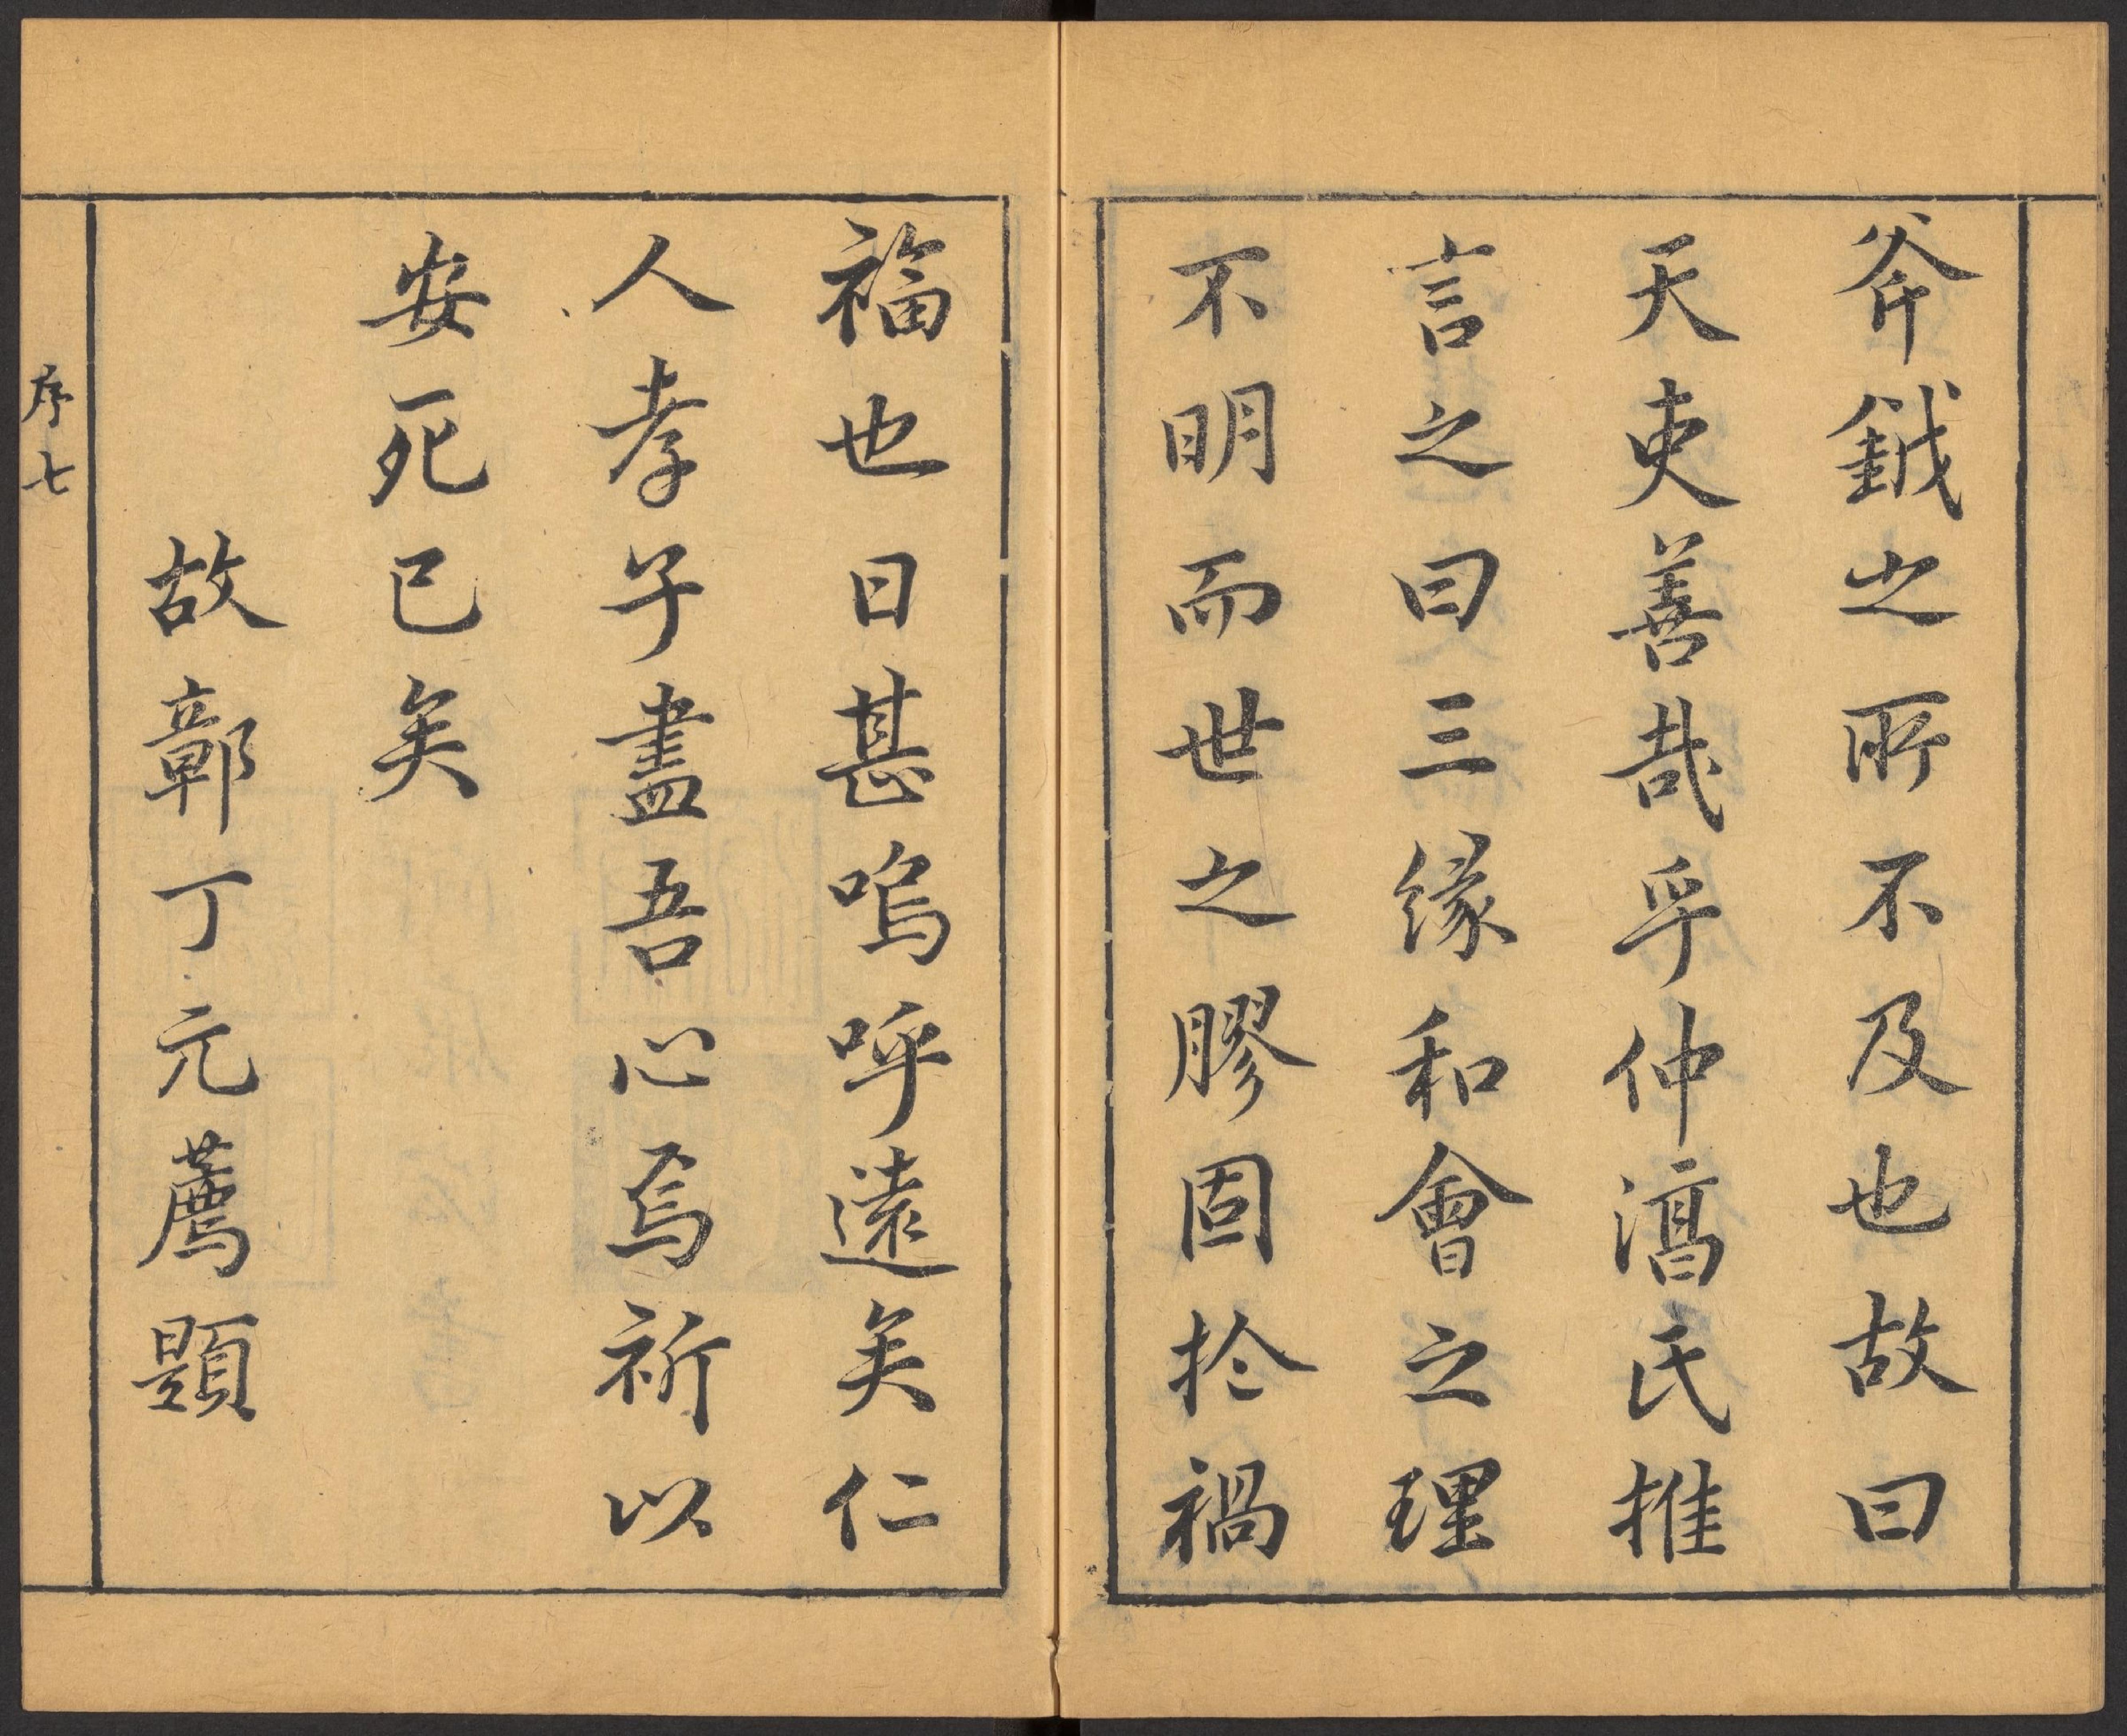 斧鉞之所不及也故曰
天吏善哉乎仲淳氏推
言之曰三緣和會之理
不明而世之膠固於禍
福也日甚嗚呼遠矣仁
人孝子盡吾心焉祈以
安死已矣
故鄣丁元薦題
序七